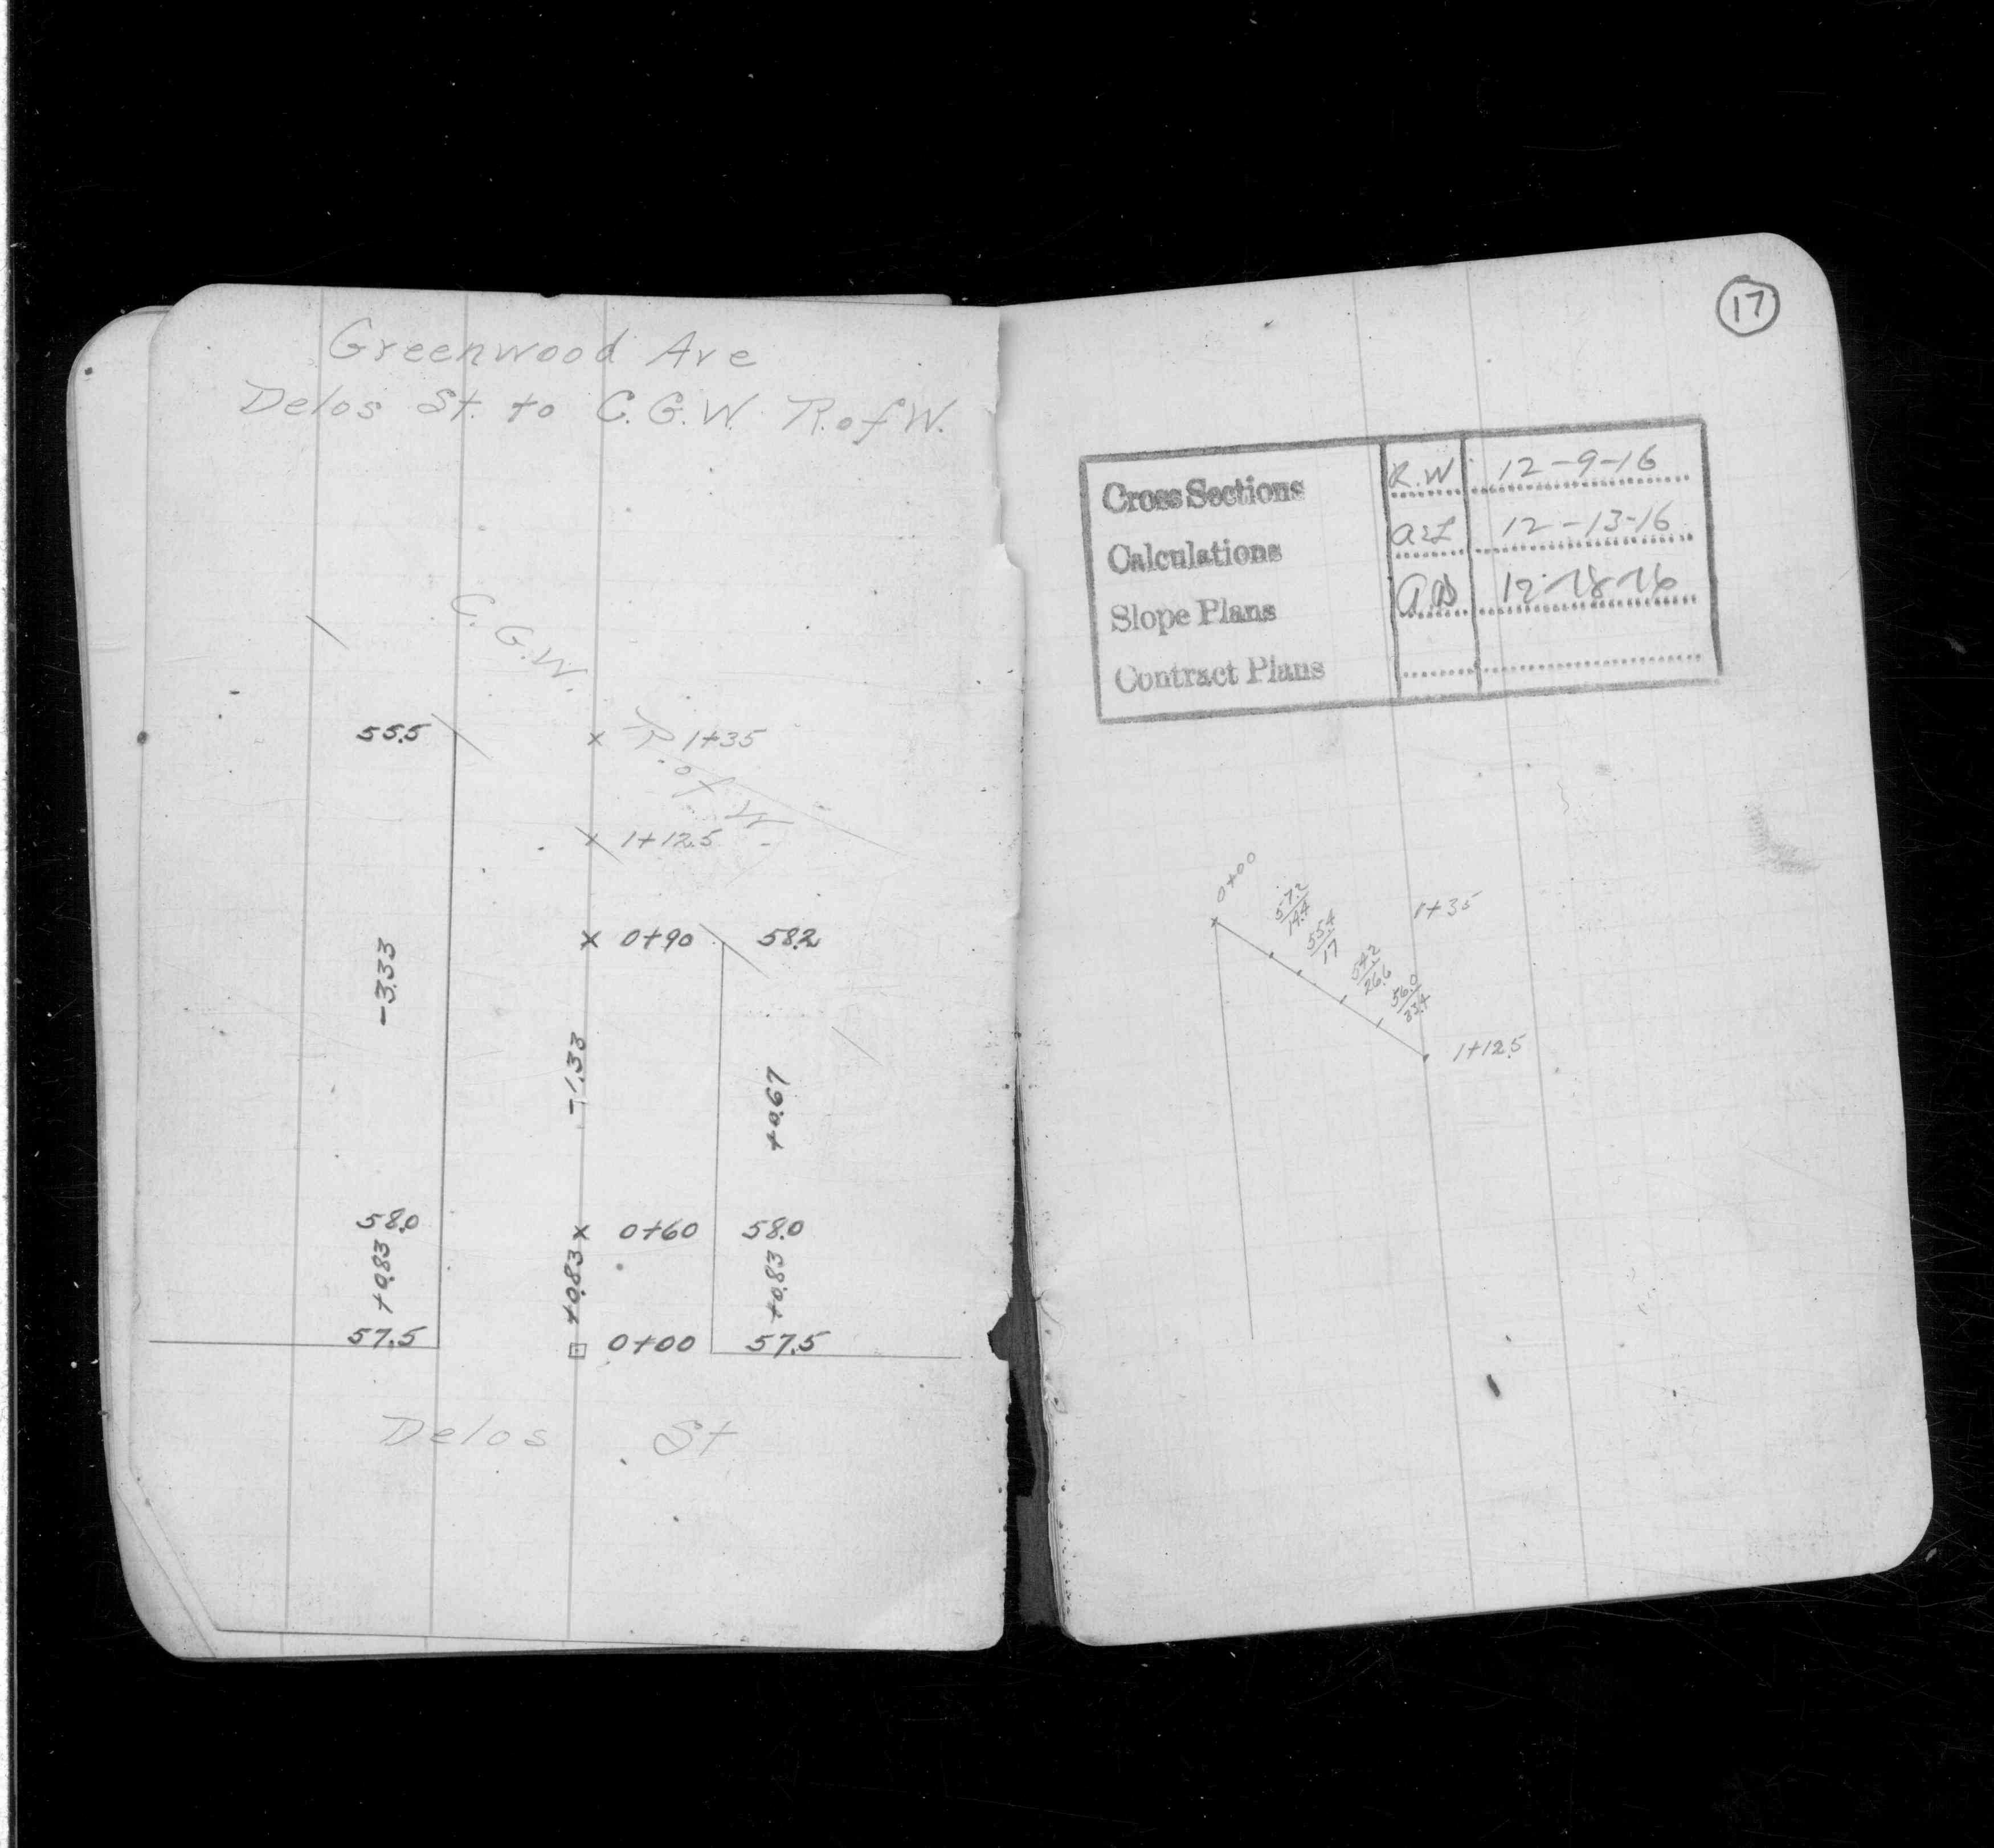 Greenwood Ave
Delos St. to C.G.W. R.of W.
C.G.W.
R.of W
55.5
1+35
1+12.5
0+90
58.2
-3.33
-1.33
+0.67
58.0
0+60
58.0
+0.83
+0.83
+0.83
57.5
0+00
57.5
Delos St
17
Cross Sections R.W 12-9-16
Calculations 12-13-16
Slope Plans 12-18-16
Contract Plans
0+00
57.2
14.4
55.4
17
54.2
26.6
56.0
33.4
1+35
1+12.5